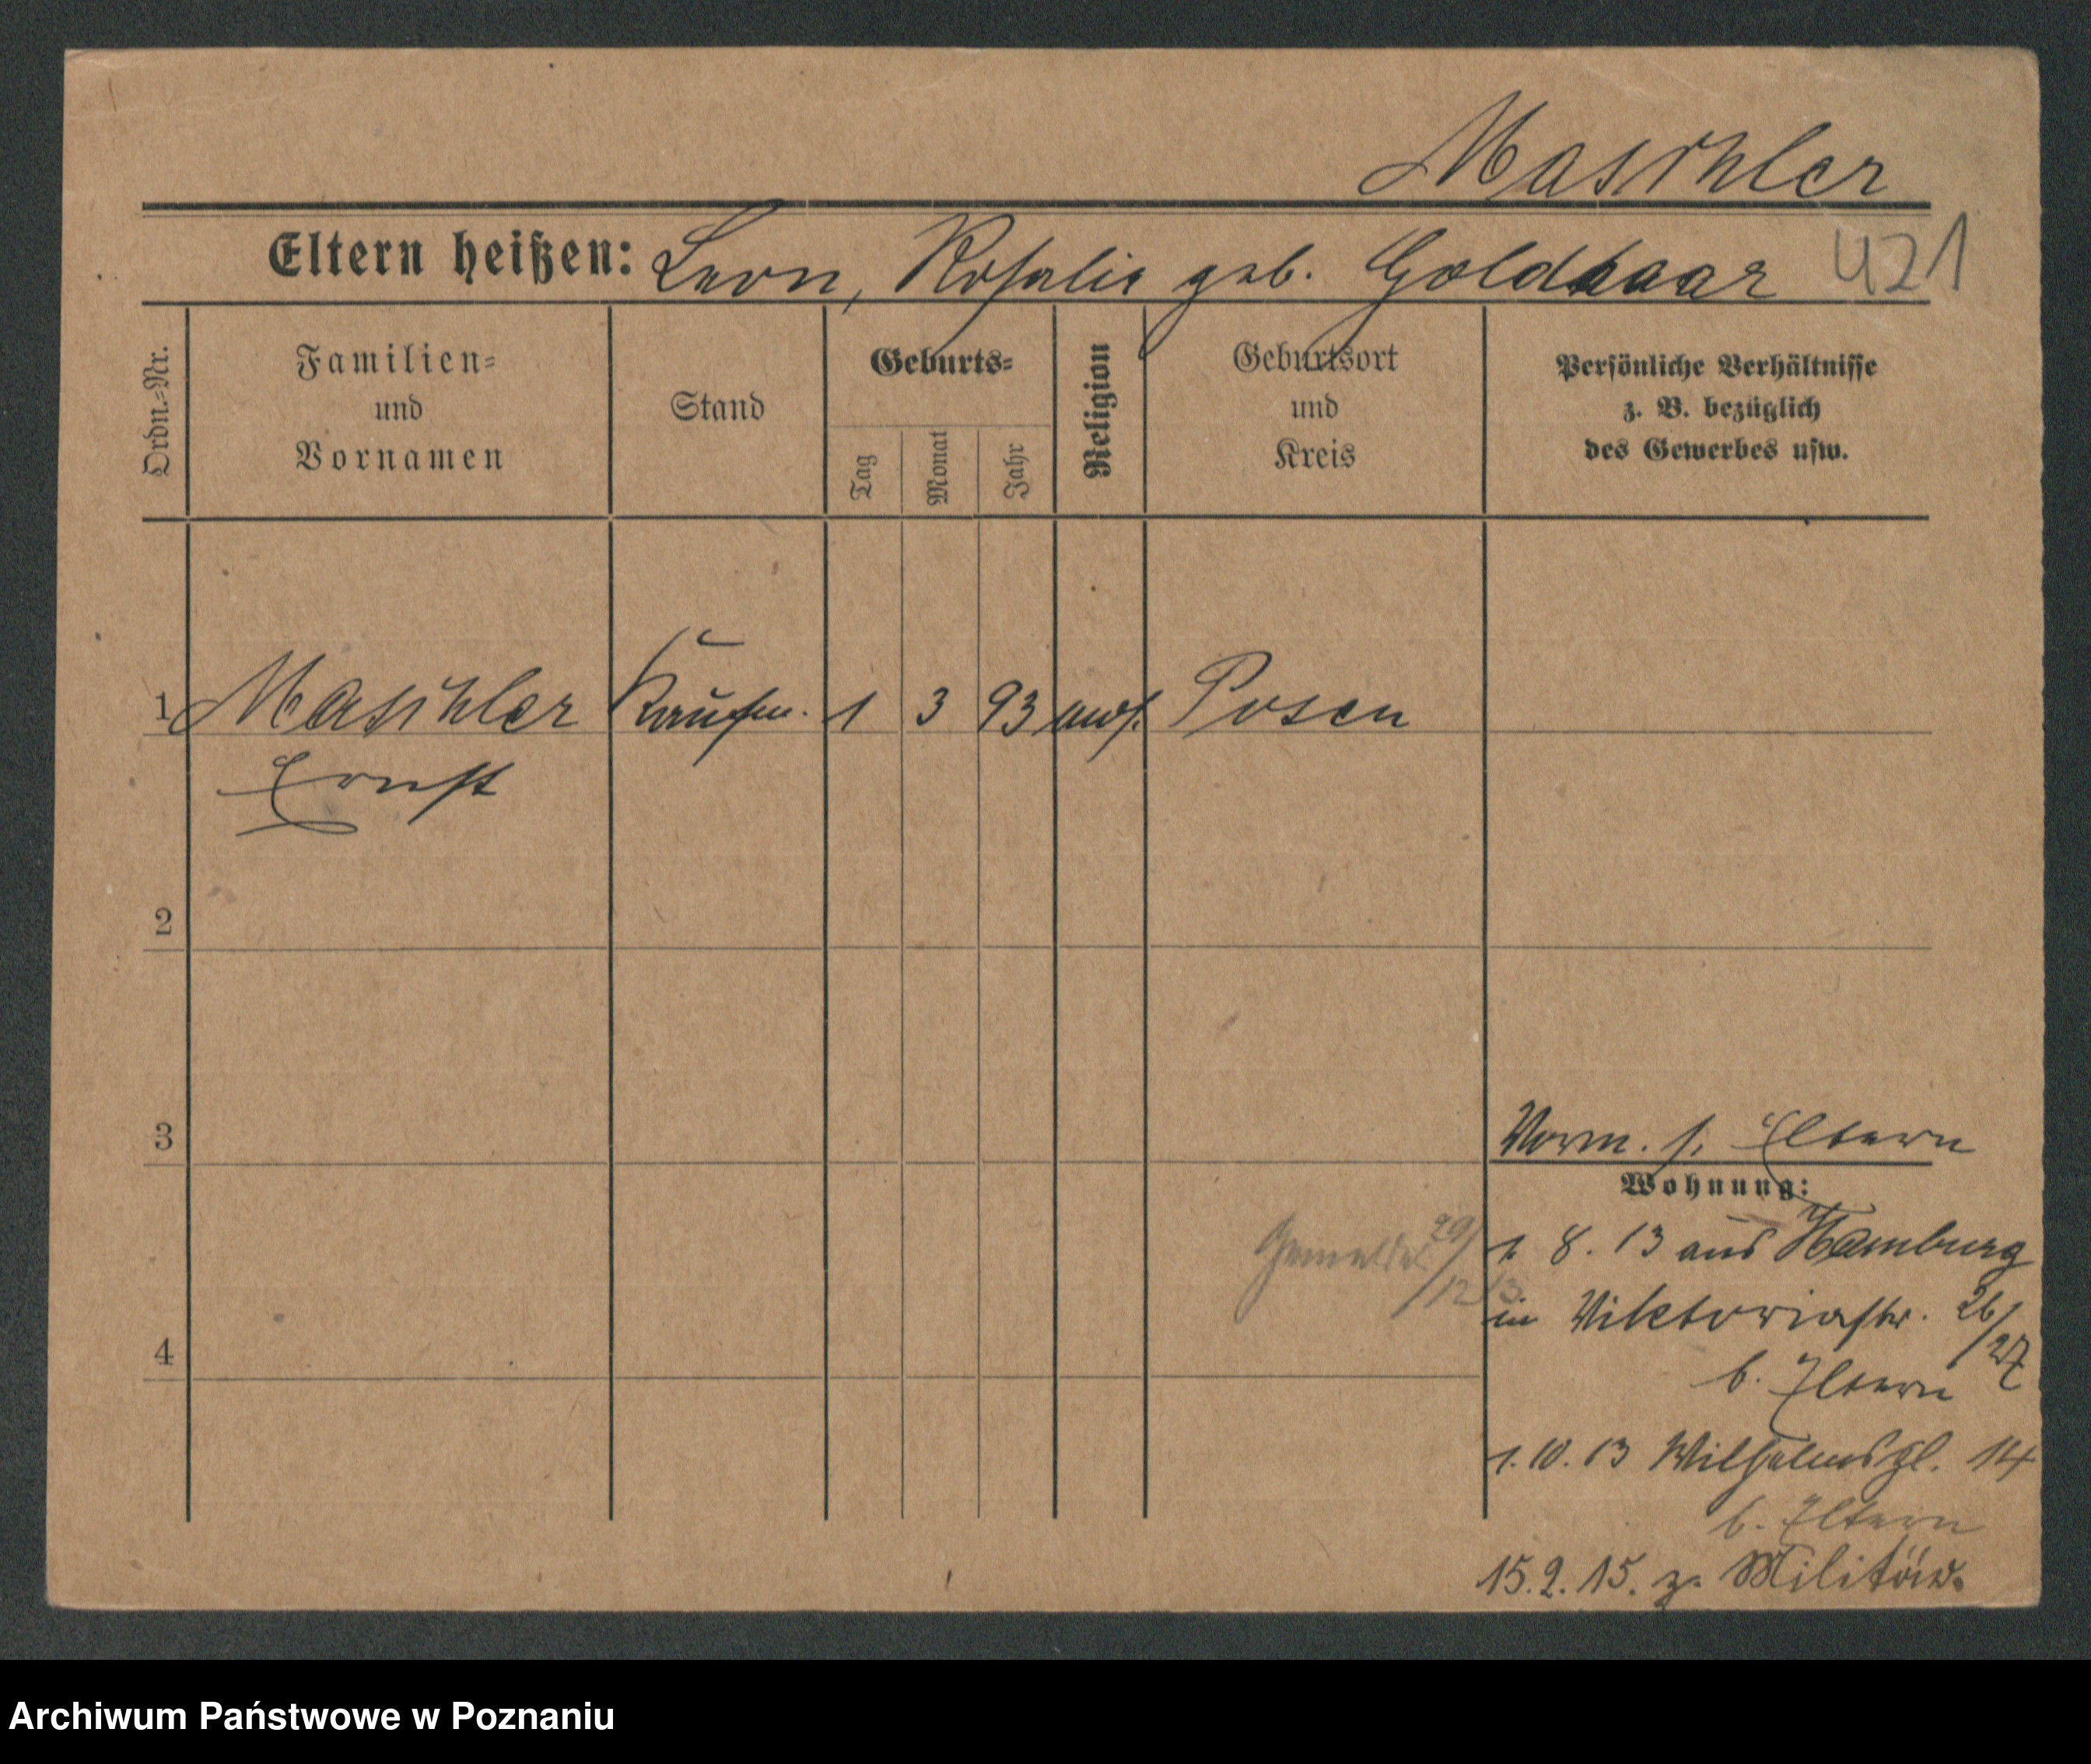 Maschler
Eltern heißen: Leon, Rosalie geb. Goldhaar 421
Ordn.-Nr.
Familien-
und
Vornamen
Stand
Geburts-
Tag
Monat
Jahr
Religion
Geburtsort
und
Kreis
Persönliche Verhältnisse
z. B. bezüglich
des Gewerbes usw.
1 Maschler Kaufm. 1 3 93 mos. Posen
Ernst
2
3
Vorm. s. Eltern
Wohnung:
1. 8. 13 aus Hamburg
in Viktoriastr. 26/27
b. Eltern
4
1. 10. 13 Wilhelmspl. 14
b. Eltern
15. 2. 15. z. Militär.
Archiwum Państwowe w Poznaniu